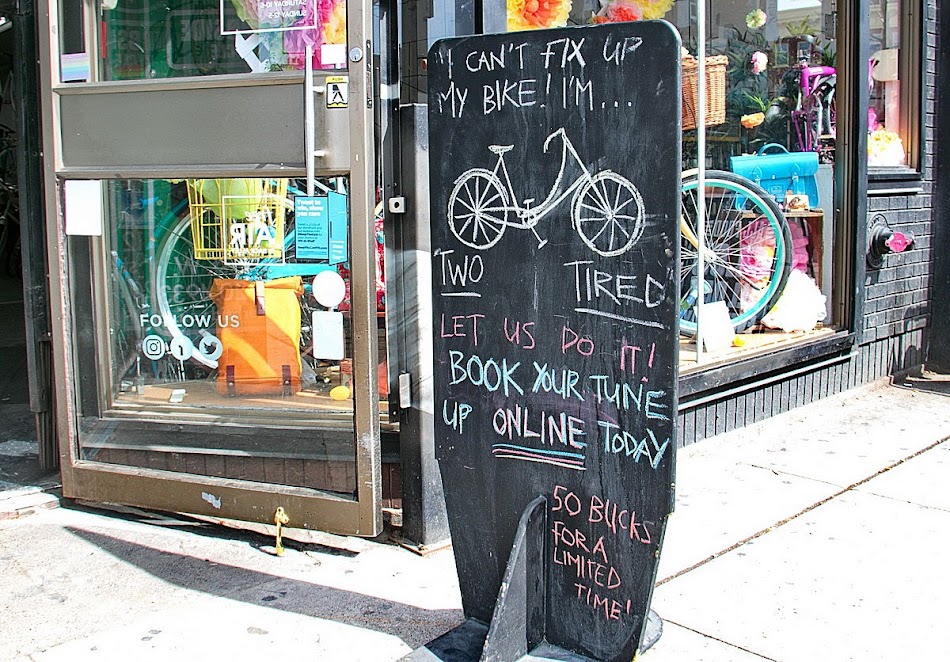 SATURDAY 10-6
SUNDAY 12-5
I CAN'T FIX UP
MY BIKE! I'M...
TWO TIRED
LET US DO IT!
BOOK YOUR TUNE
UP ONLINE TODAY
50 BUCKS
FOR A
LIMITED
TIME!
FOLLOW US
AIR